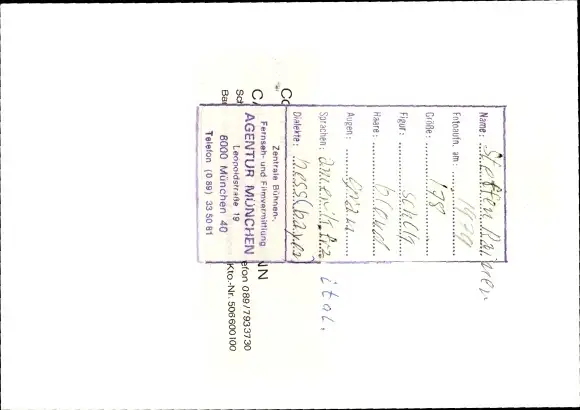 Name: Steffen
Fotoaufn. am: 1979
Größe: 178
Figur: schlk
Haare: blond
Augen: grau
Sprachen: amerik. frz. ital.
Dialekte: hess. bayr.
Zentrale Bühnen-,
Fernseh- und Filmvermittlung
AGENTUR MÜNCHEN
Leopoldstraße 19
8000 München 40
Telefon (0 89) 33 50 81
efon 089/7933730
Kto.-Nr. 506600100